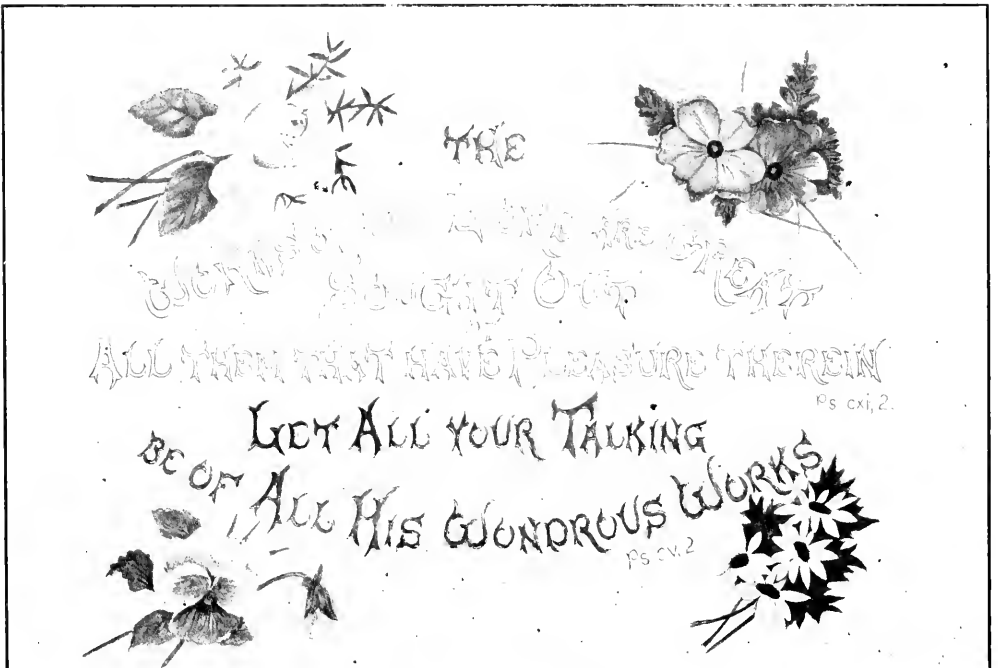 THE
WORKS LORD ARE GREAT
SOUGHT OUT
ALL THEM THAT HAVE PLEASURE THEREIN
Ps cxi, 2.
LET ALL YOUR TALKING
BE OF ALL HIS WONDROUS WORKS
Ps cv. 2